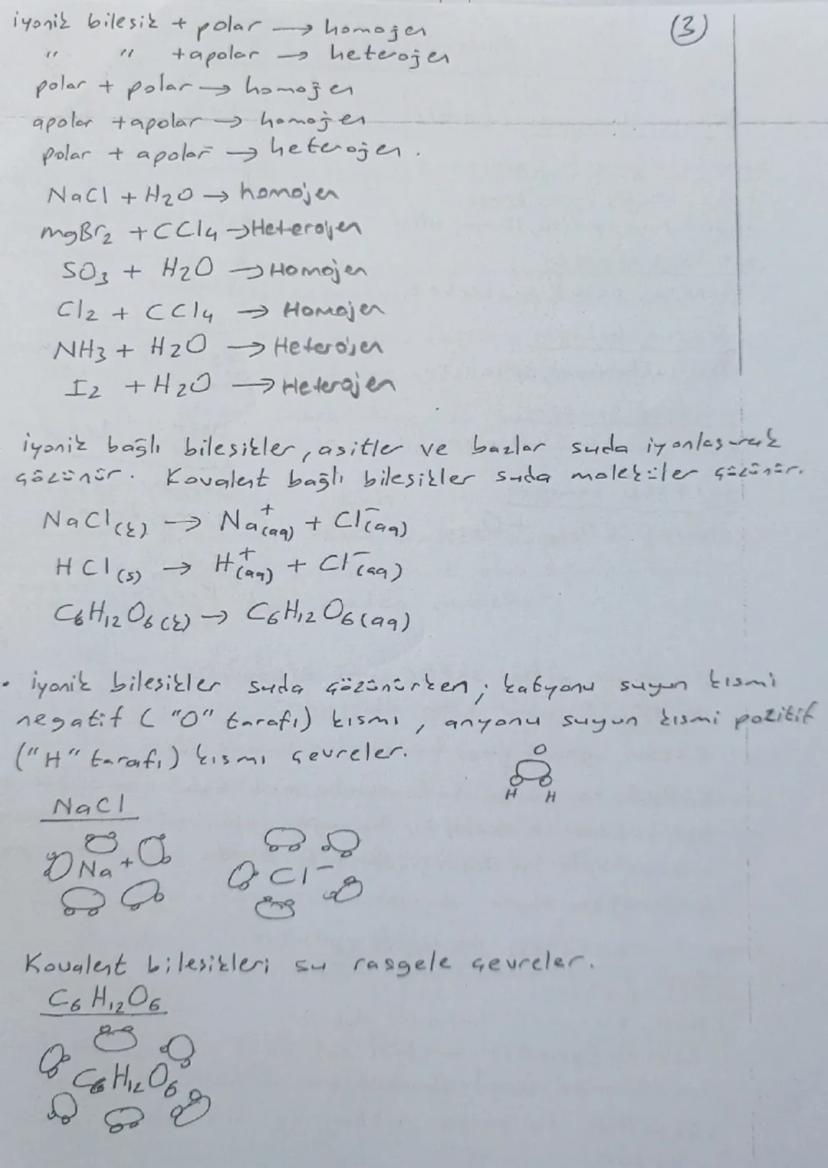 iyonik bilesik + polar → homojen (3)
" " + apolar → heterojen
polar + polar → homojen
apolar + apolar → homojen
polar + apolar → heterojen.
NaCl + H2O → homojen
mgBr2 + CCl4 → Heterojen
SO3 + H2O → Homojen
Cl2 + CCl4 → Homojen
NH3 + H2O → Heterojen
I2 + H2O → Heterojen
iyonik bağlı bilesikler, asitler ve bazlar suda iyonlasarak
çözünür. Kovalent bağlı bilesikler suda moleküler çözünür.
NaCl(k) → Na+(aq) + Cl-(aq)
HCl(s) → H+(aq) + Cl-(aq)
C6H12O6(k) → C6H12O6(aq)
• iyonik bilesikler suda çözünürken; katyonu suyun kısmi
negatif ("O" tarafı) kısmı, anyonu suyun kısmi pozitif
("H" tarafı) kısmı çevreler.
O
H H
NaCl
Na+ Cl-
Kovalent bilesikleri su rasgele çevreler.
C6H12O6
C6H12O6